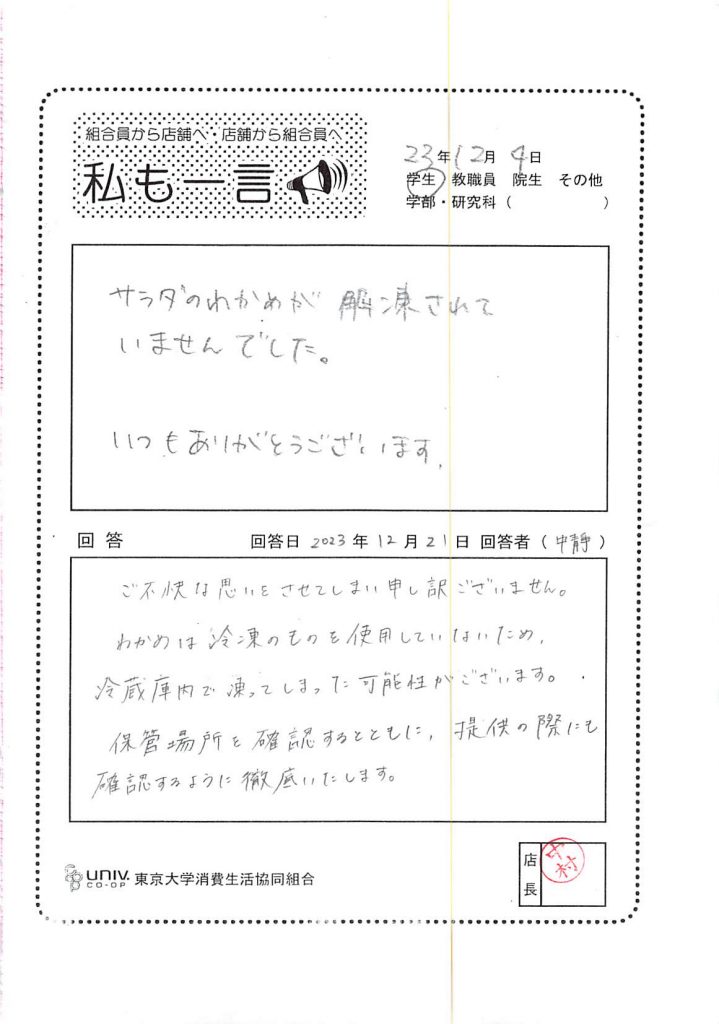 組合員から店舗へ・店舗から組合員へ
私も一言
23年12月4日
学生 教職員 院生 その他
学部・研究科（ ）
サラダのわかめが解凍されて
いませんでした。
いつもありがとうございます。
回答 回答日 2023年12月21日 回答者（中靜）
ご不快な思いをさせてしまい申し訳ございません。
わかめは冷凍のものを使用していないため、
冷蔵庫内で凍ってしまった可能性がございます。
保管場所を確認するとともに、提供の際にも
確認するように徹底いたします。
UNIV. CO-OP 東京大学消費生活協同組合
店長 中村